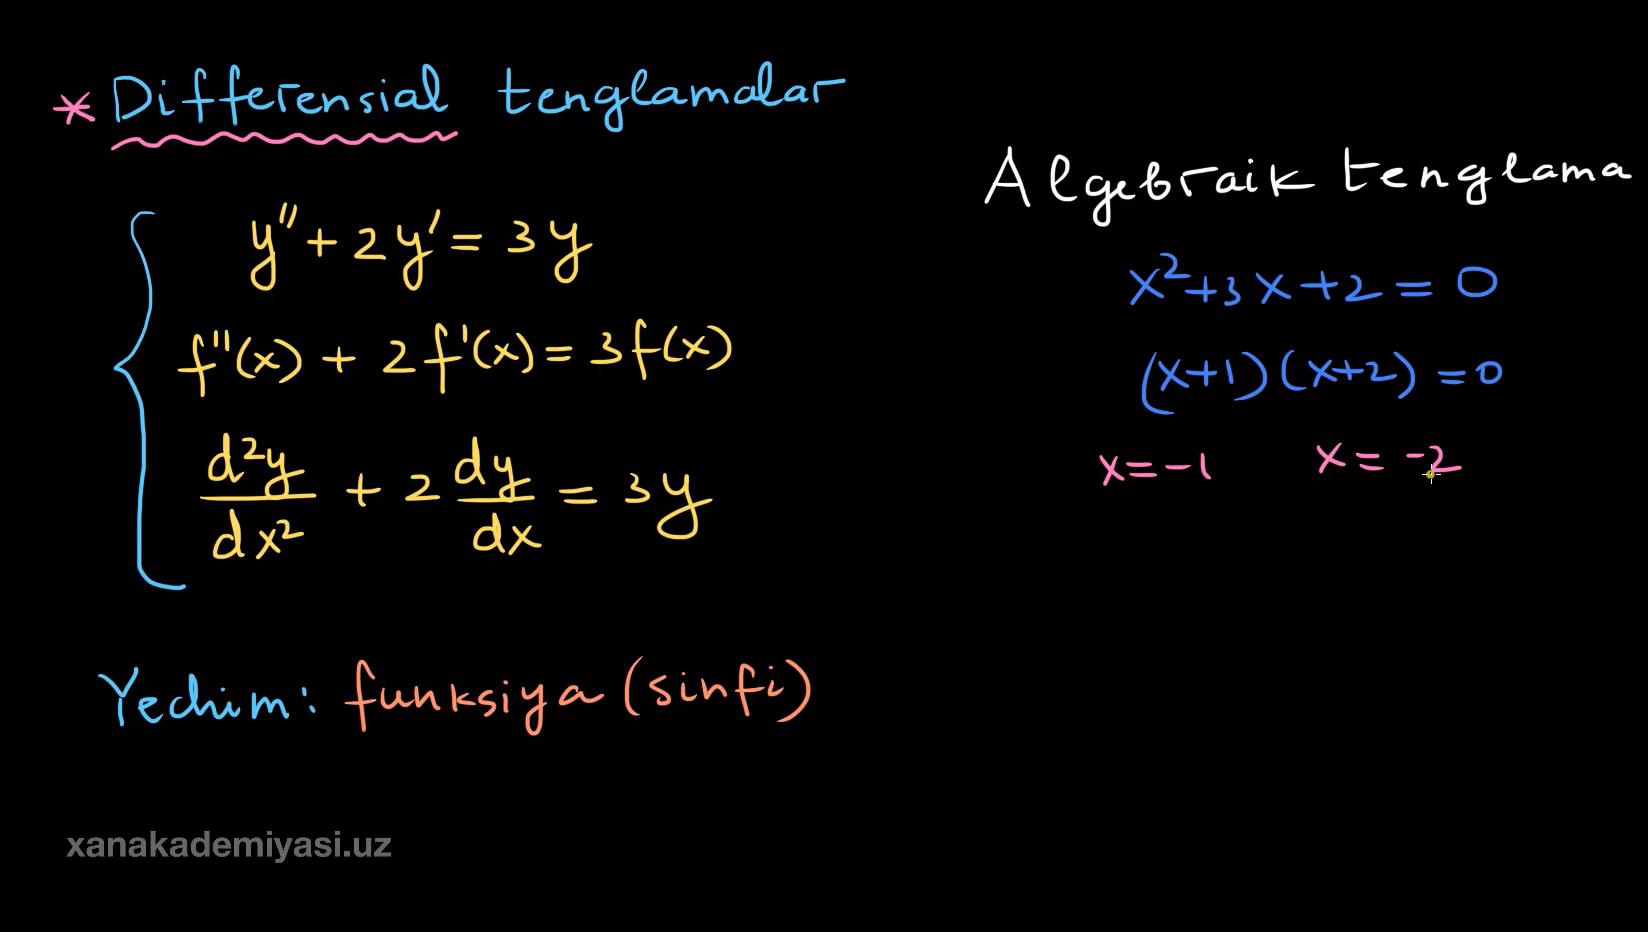 * Differensial tenglamalar
y'' + 2y' = 3y
f''(x) + 2f'(x) = 3f(x)
d²y/dx² + 2 dy/dx = 3y
Yechim: funksiya (sinfi)
Algebraik tenglama
x² + 3x + 2 = 0
(x+1)(x+2) = 0
x = -1 x = -2
xanakademiyasi.uz